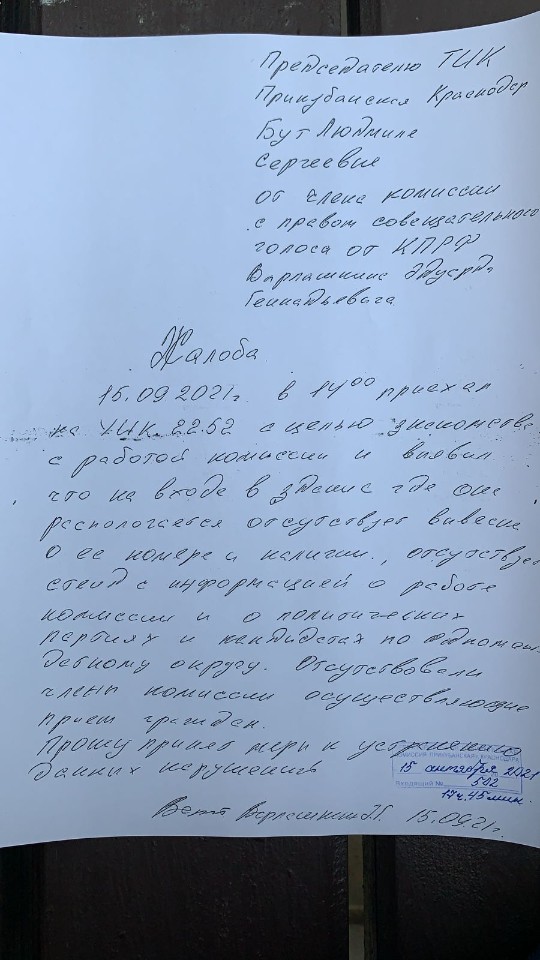 Председателю ТИК
Прикубанская Краснодар
Бут Людмиле
Сергеевне
от члена комиссии
с правом совещательного
голоса от КПРФ
Варлашкина Эдуарда
Геннадьевича
Жалоба
15.09.2021г. в 14⁰⁰ приехал
на УИК 22.52 с целью знакомства
с работой комиссии и выявил
что на входе в здание где она
распологается отсутствует вывеска
о ее номере и наличии., отсутствует
стенд с информацией о работе
комиссии и о политических
партиях и кандидатах по одноман-
датному округу. Отсутствовали
члены комиссии осуществляющие
прием граждан.
Прошу принять меры к устранению
данных нарушений
15 сентября 2021
Входящий № 502
17ч.45мин.
Варлашкин Э.Г. 15.09.21г.